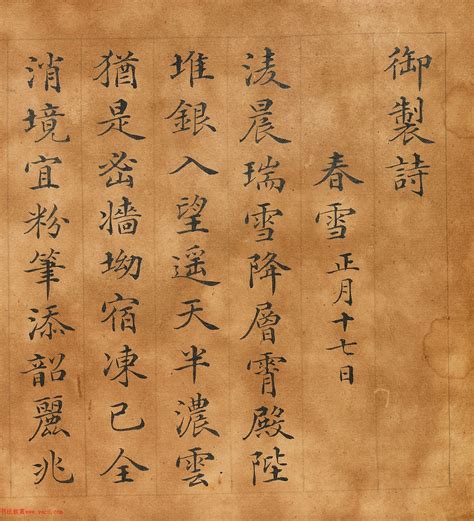 御製詩
春雪正月十七日
淩晨瑞雪降層霄殿陛
堆銀入望遥天半濃雲
猶是密牆坳宿凍已全
消境宜粉筆添韶麗兆
www.yac8.com